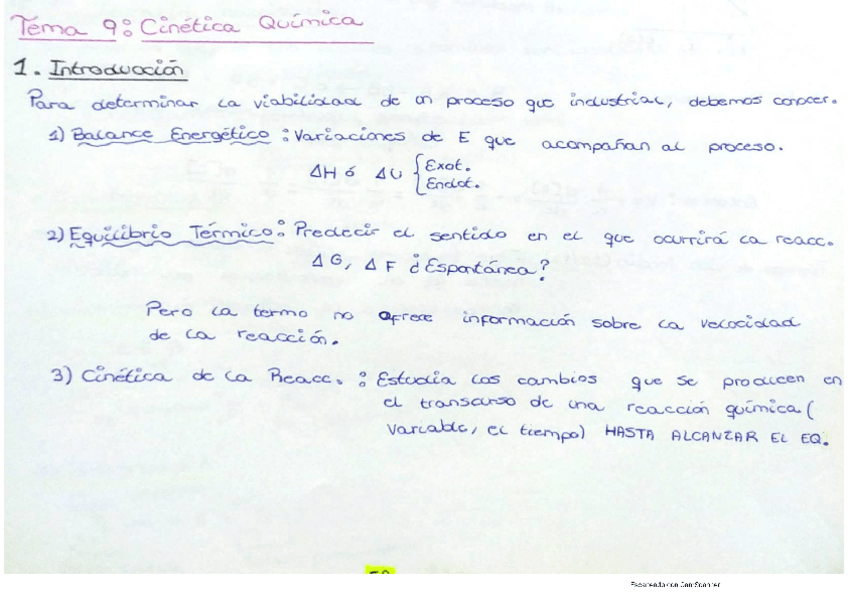 Tema 9: Cinética Química
1. Introducción
Para determinar la viabilidad de un proceso que industrial, debemos conocer.
1) Balance Energético : Variaciones de E que acompañan al proceso.
ΔH ó ΔU { Exot.
Endot.
2) Equilibrio Térmico : Predecir el sentido en el que ocurrirá la reacc.
ΔG, ΔF ¿Espontánea?
Pero la termo no ofrece información sobre la velocidad
de la reacción.
3) Cinética de la Reacc. : Estudia los cambios que se producen en
el transcurso de una reacción química (
variable, el tiempo) HASTA ALCANZAR EL EQ.
Escaneado con CamScanner